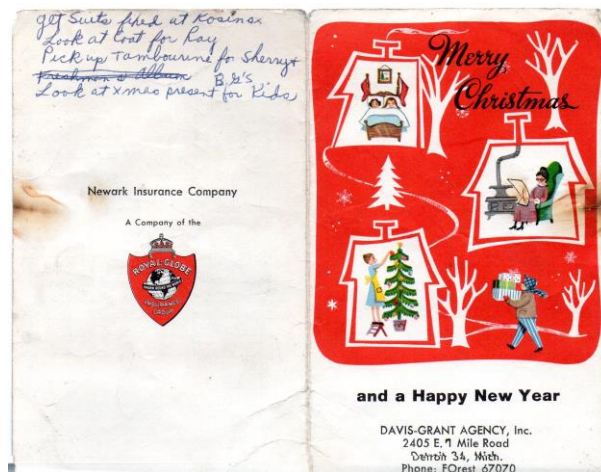 get Suits fixed at Kosins.
Look at Coat for Ray
Pick up Tambourine for Sherry +
Freshmen's Album B.G'S
Look at Xmas present for Kids
Newark Insurance Company
A Company of the
ROYAL-GLOBE
INSURANCE
GROUP
Merry
Christmas
and a Happy New Year
DAVIS-GRANT AGENCY, Inc.
2405 E. 7 Mile Road
Detroit 34, Mich.
Phone: FOrest 67070